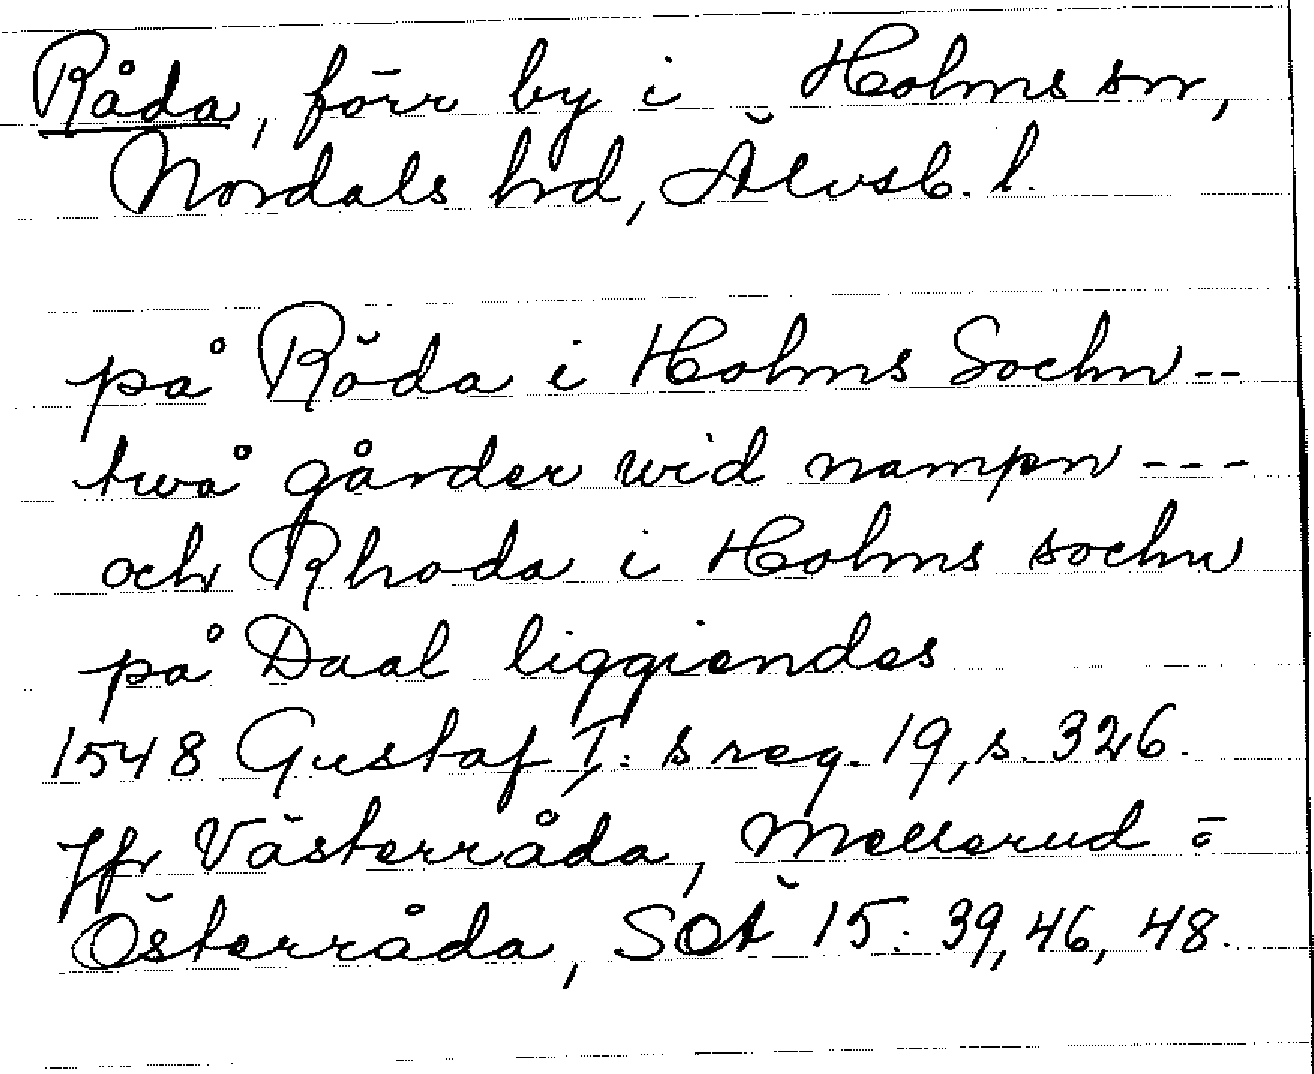 Råda, förr by i Holms sn,
Nordals hd, Älvsb. l.
på Röda i Holms Sochn --
twå gårder wid nampn ---
och Rhoda i Holms sochn
på Daal liggiendes
1548 Gustaf I: s reg. 19, s. 326.
Jfr Västerråda, Mellerud o
Österråda, SOÄ 15: 39, 46, 48.